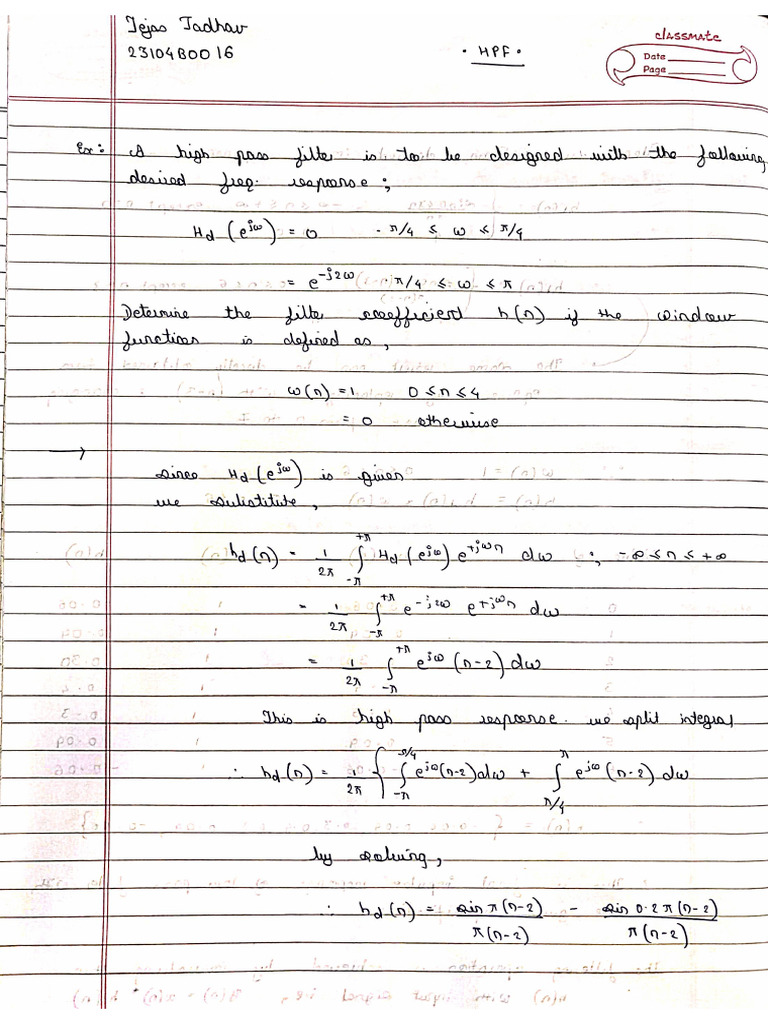 Tejas Jadhav
23104B0016
• HPF •
classmate
Date
Page
Ex: A high pass filter is to be designed with the following
desired freq. response;
Hd(e^jω) = 0 -π/4 ≤ ω ≤ π/4
= e^-j2ω π/4 ≤ ω ≤ π
Determine the filter coefficient h(n) if the window
function is defined as,
ω(n) = 1 0 ≤ n ≤ 4
= 0 otherwise
→
since Hd(e^jω) is given
we substitute,
hd(n) = 1/2π ∫_-π^+π Hd(e^jω) e^+jωn dω ; -∞ ≤ n ≤ +∞
= 1/2π ∫_-π^+π e^-j2ω e^+jωn dω
= 1/2π ∫_-π^+π e^jω (n-2) dω
This is high pass response. we split integral
∴ hd(n) = 1/2π { ∫_-π^π/4 e^jω(n-2) dω + ∫_π/4^π e^jω (n-2) dω
by solving,
∴ hd(n) = sin π(n-2)/π(n-2) - sin 0.2π(n-2)/π(n-2)